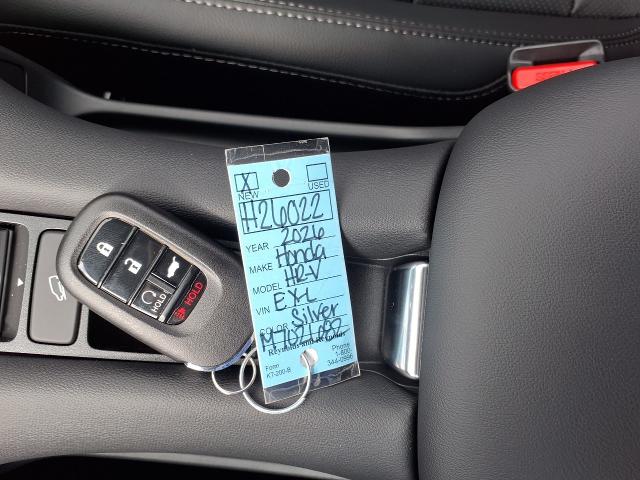 X
NEW
USED
H26022
YEAR 2026
MAKE Honda
MODEL HR-V
VIN EX-L
COLOR Silver
M7021082
Reynolds and Reynolds
Form
KT-200-B
Phone
1-800-
344-0996
HOLD
HOLD